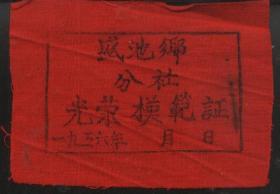 城池鄉
分社
光荣模範証
一九五六年 月 日